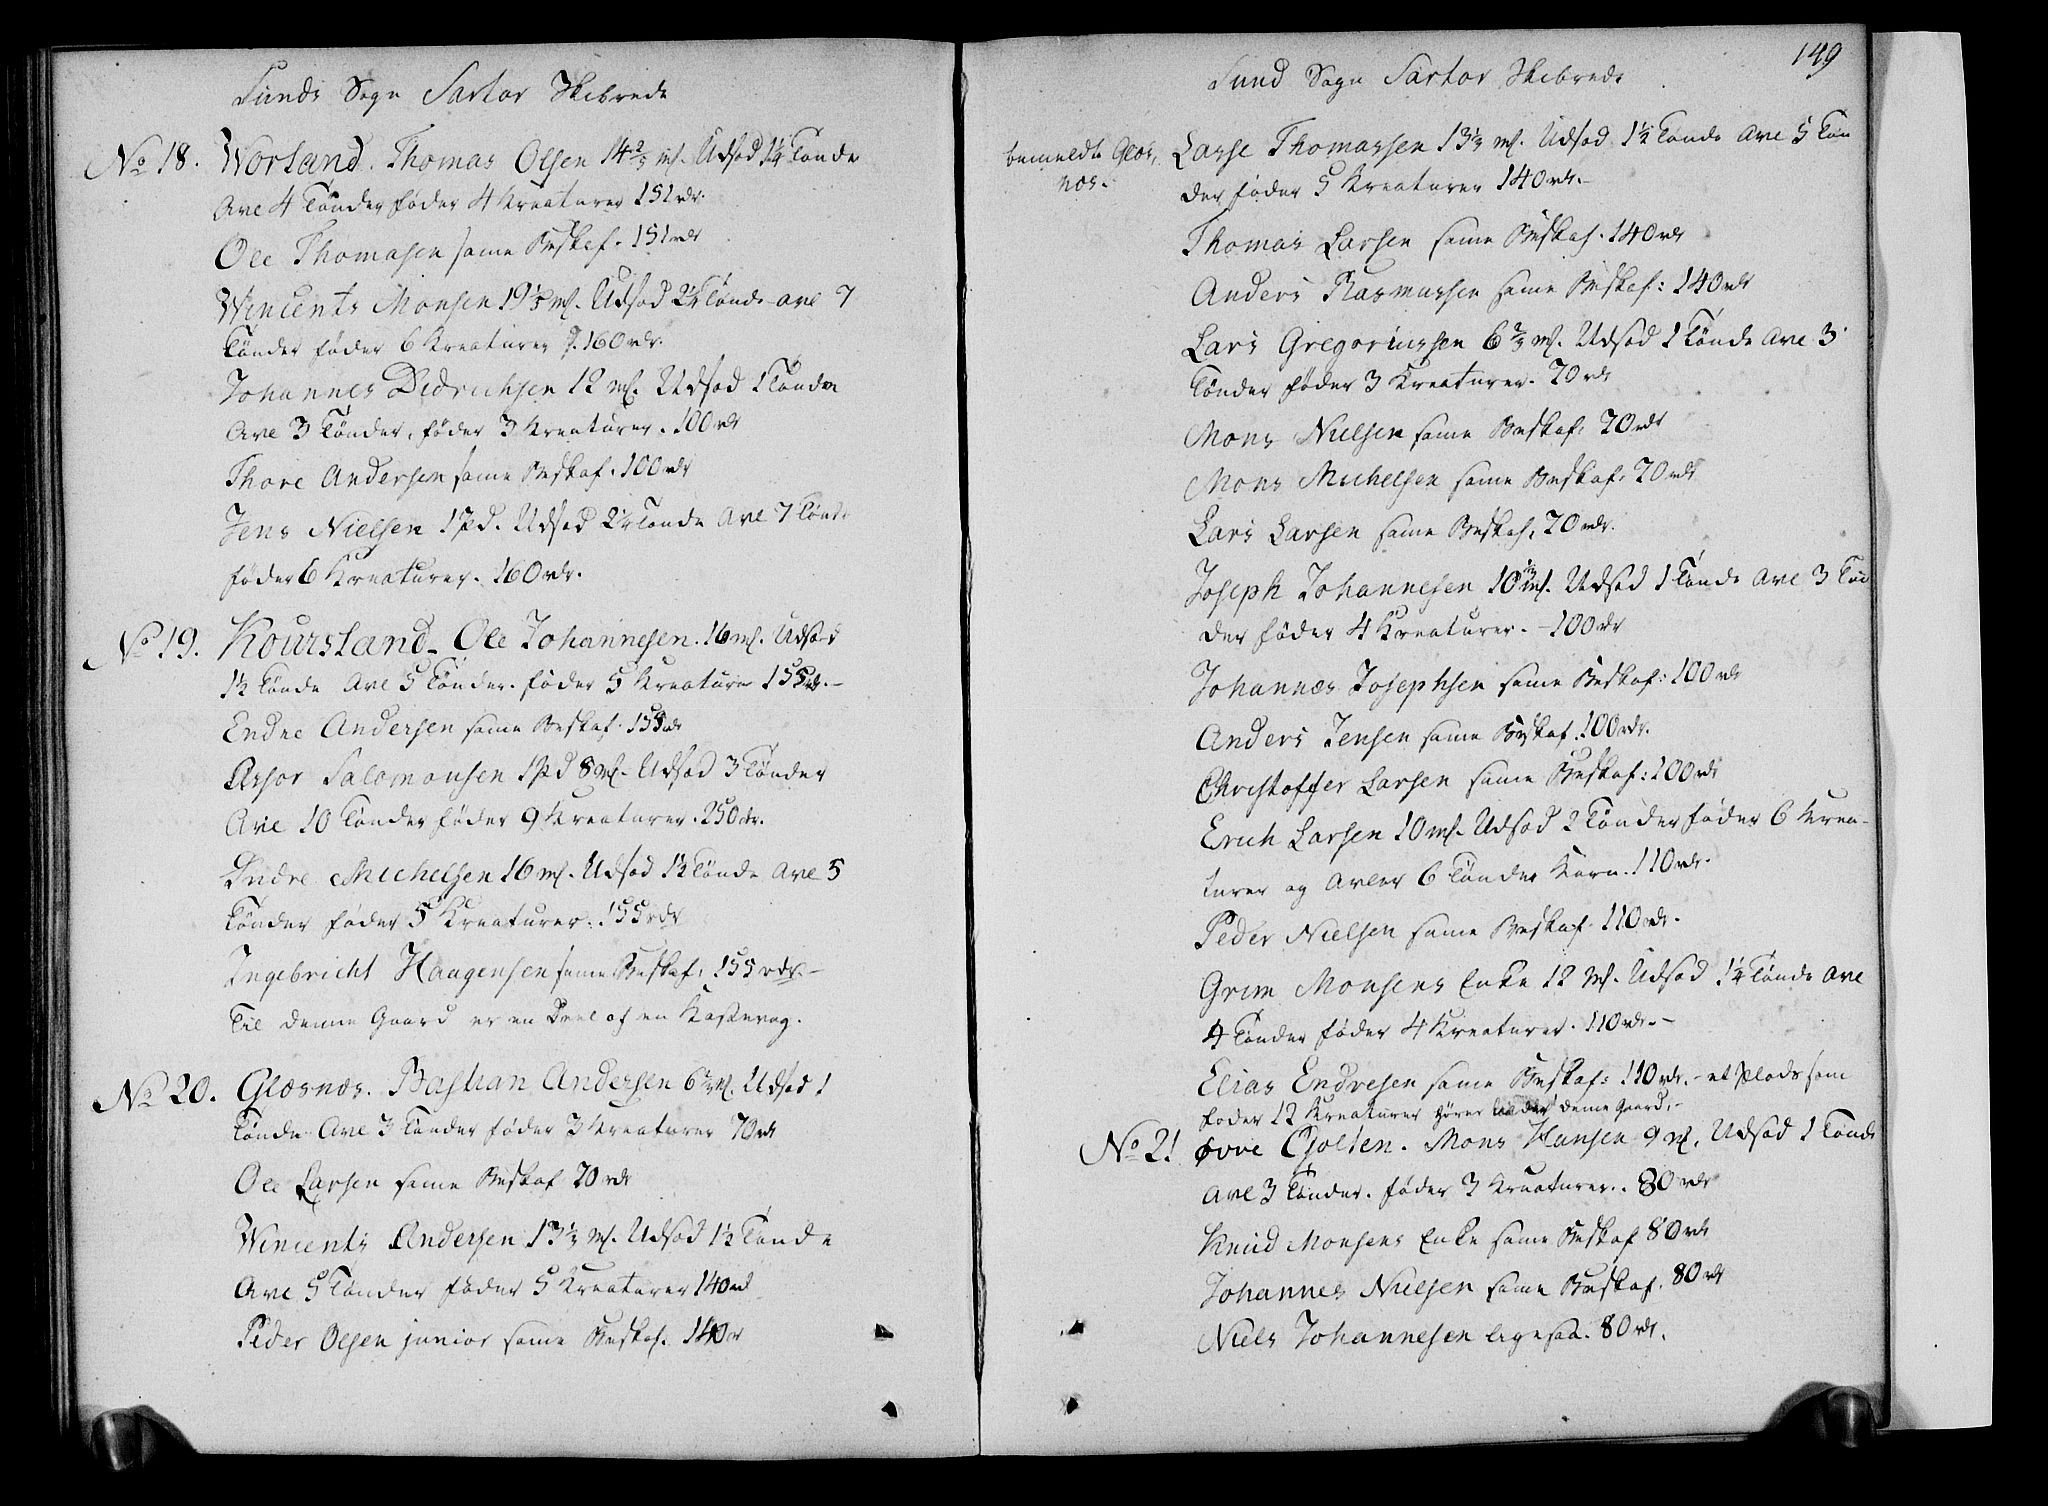 Sunds Sogn Sartor Skibrede
No 18. Worland. Thomas Olsen 14 2/3 ml. Udsæd 1 1/4 Tønde
Avl 4 Tønder føder 4 Kreaturer 151 rdr.
Ole Thomasen same Beskaf. 151 rdr
Wincents Monsen 19 1/5 ml. Udsæd 2 1/4 Tønde avl 7
Tønder føder 6 Kreaturer 160 rdr.
Johannes Didrichsen 12 ml. Udsæd 1 Tønde
Avl 3 Tønder, føder 3 Kreaturer. 100 rdr
Thore Andersen same Beskaf. 100 rdr
Jens Nielsen 1 pd. Udsæd 2 1/4 Tønde Avl 7 Tønde
føder 6 Kreaturer. 160 rdr.
No 19. Koursland. Ole Johannesen. 16 ml. Udsæd
1 1/2 Tønde Avl 5 Tønder. føder 5 Kreaturer 155 rdr.-
Endre Andersen same Beskaf. 155 rdr
Assor Salomonsen 1 pd 8 ml. Udsæd 3 Tønder
Avl 10 Tønder føder 9 Kreaturer. 250 rdr.
Endre Michelsen 16 ml. Udsæd 1 1/2 Tønde Avl 5
Tønder føder 5 Kreaturer. 155 rdr
Ingebricht Haagensen same Beskaf. 155 rdr.-
Til denne Gaard er en Deel af en Kastevog.
No 20. Glæsnæs. Bastian Andersen 6 2/3 ml. Udsæd 1
Tønde Avl 3 Tønder føder 3 Kreaturer 70 rdr
Ole Larsen same Beskaf 70 rdr
Wincents Andersen 13 1/3 ml. Udsæd 1 1/2 Tønde
Avl 5 Tønder føder 5 Kreaturer 140 rd
Peder Olsen junior same Beskaf. 140 r
149
Sund Sogn Sartor Skibrede
bemeldte Glæs,
næs.
Lasse Thomassen 13 1/3 ml. Udsæd 1 1/2 Tønde Avl 5 Tøn
der føder 5 Kreaturer 140 rdr.-
Thomas Larsen same Beskaf. 140 rdr
Anders Rasmussen same Beskaf: 140 rdr
Lars Gregoriussen 6 2/3 ml. Udsæd 1 Tønde Avl 3
Tønder føder 3 Kreaturer. 70 rdr
Mons Nielsen same Beskaf. 70 rdr
Mons Michelsen same Beskaf. 70 rdr
Lars Larsen same Beskaf. 70 rdr.
Joseph Johannesen 10 ml. Udsæd 1 Tønde Avl 3 Tøn
der føder 4 Kreaturer. - 100 rdr
Johannes Josephsen same Beskaf: 100 rdr
Anders Jensen same Beskaf. 100 rdr.
Christoffer Larsen same Beskaf: 100 rdr
Erich Larsen 10 ml. Udsæd 2 Tønder føder 6 Krea-
turer og Avler 6 Tønder Korn. 110 rdr.
Peder Nielsen same Beskaf. 110 rdr.
Grim Monsens Enke 12 ml. Udsæd 1 1/4 Tønde Avl
4 Tønder føder 4 Kreaturer. 110 rdr.-
Elias Endresen same Beskaf: 110 rdr. - et plads som
føder 12 Kreaturer hører under denne Gaard.-
No 21 øvre Gjolten. Mons Hansen 9 ml. Udsæd 1 Tønde
Avl 3 Tønder. føder 3 Kreaturer. 80 rdr
Knud Monsens Enke same Beskaf 80 rdr
Johannes Nielsen same Beskaf. 80 rdr
Niels Johannesen ligesaa. 80 rdr.